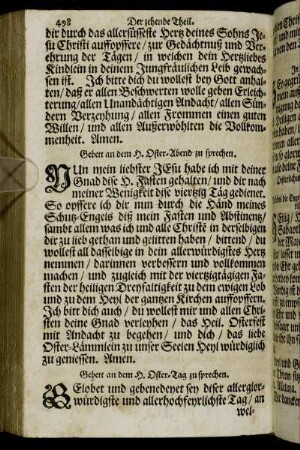 498 Der zehende Theil.
dir durch das allersüsseste Hertz deines Sohns Je-
su Christi auffopffere / zur Gedächtnuß und Ver-
ehrung der Tägen / in welchen dein Hertzliebes
Kindlein in deinem Jungfräulichen Leib gewach-
sen ist. Ich bitte dich du wollest bey Gott anhal-
ten / daß er allen Beschwerten wolle geben Erleich-
terung / allen Unandächtigen Andacht / allen Sün-
dern Verzeyhung / allen Frommen einen guten
Willen / und allen Außerwöhlten die Vollkom-
menheit. Amen.
Gebett an dem H. Oster-Abend zu sprechen.
NUn mein liebster JEsu habe ich mit deiner
Gnad dise H. Fasten gehalten / und dir nach
meiner Wenigkeit dise viertzig Täg gedienet.
So opffere ich dir nun durch die Händ meines
Schutz-Engels diß mein Fasten und Abstinentz /
sambt allem was ich und alle Christē in derselbigen
dir zu lieb gethan und gelitten haben / bittend / du
wollest all dasselbige in dein allerwürdigstes Hertz
nemmen / darinnen verbessern und vollkommen
machen / und zugleich mit der viertzigtägigen Fa-
sten der heiligen Dreyfaltigkeit zu dem ewigen Lob
und zu dem Heyl der gantzen Kirchen auffopffern.
Ich bitt dich auch / du wollest mir und allen Chri-
sten deine Gnad verleyhen / das Heil. Osterfest
mit Andacht zu begehen / und dich / das liebe
Oster-Lämmlein zu unser Seelen Heyl würdiglich
zu geniessen. Amen.
Gebett an dem H. Oster-Tag zu sprechen.
GElobet und gebenedeyet sey diser allerglor-
würdigste und allerhochfeyrlichste Tag / an
wel-